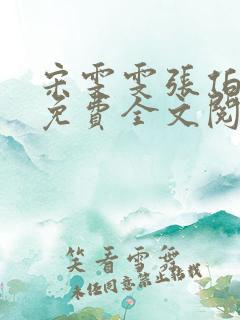 宋雯雯張伯
免費全文閱
笑看雪舞
未经同意禁止转载